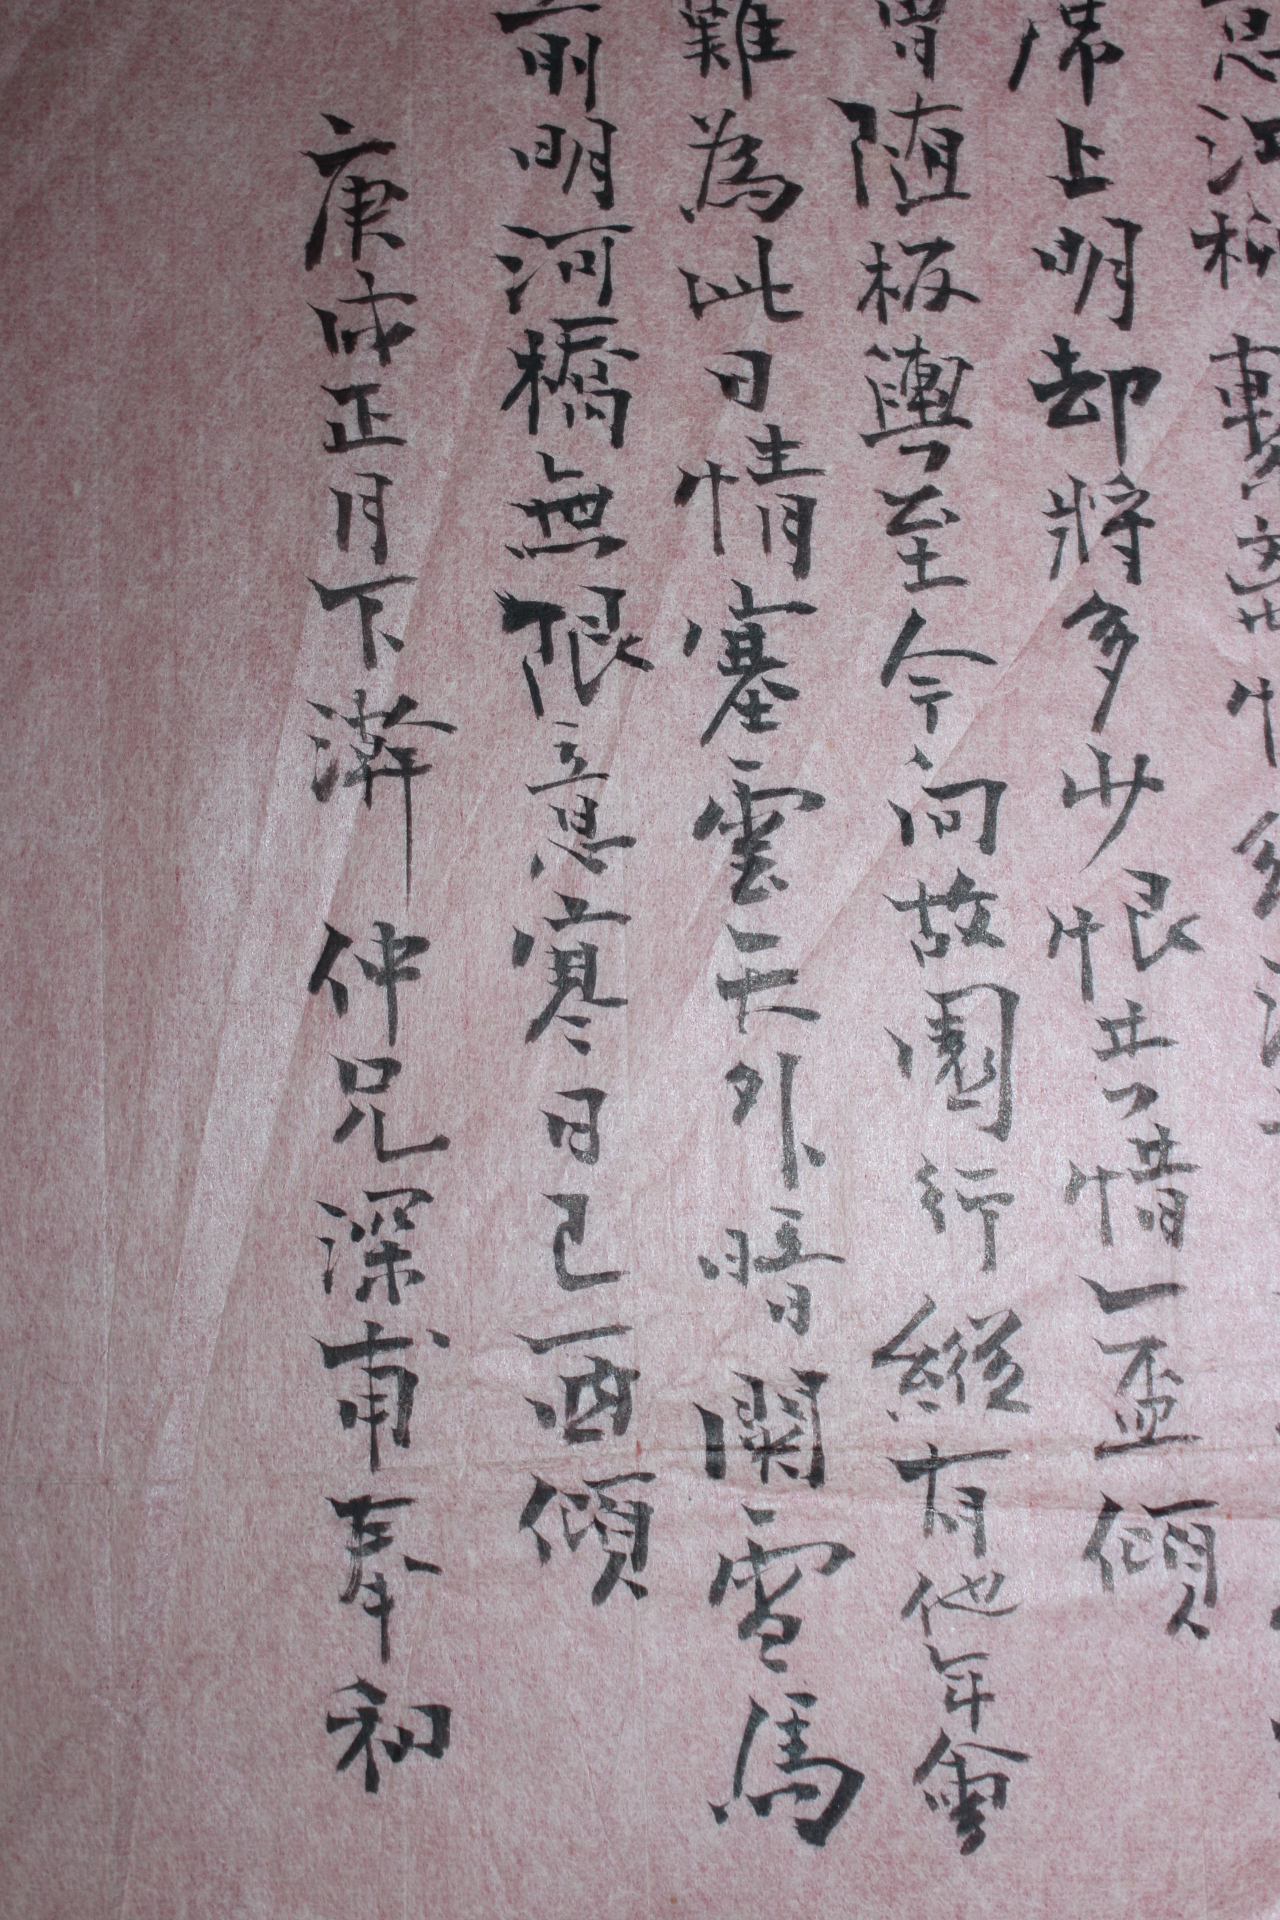 江柳
席上明却將多少恨共惜一盃傾
随板輿至今向故園行縱有他年會
難為此日情塞雲天外暗關雪馬
前明河橋無限意寒日已西傾
庚戌正月下澣 仲兄深甫奉和